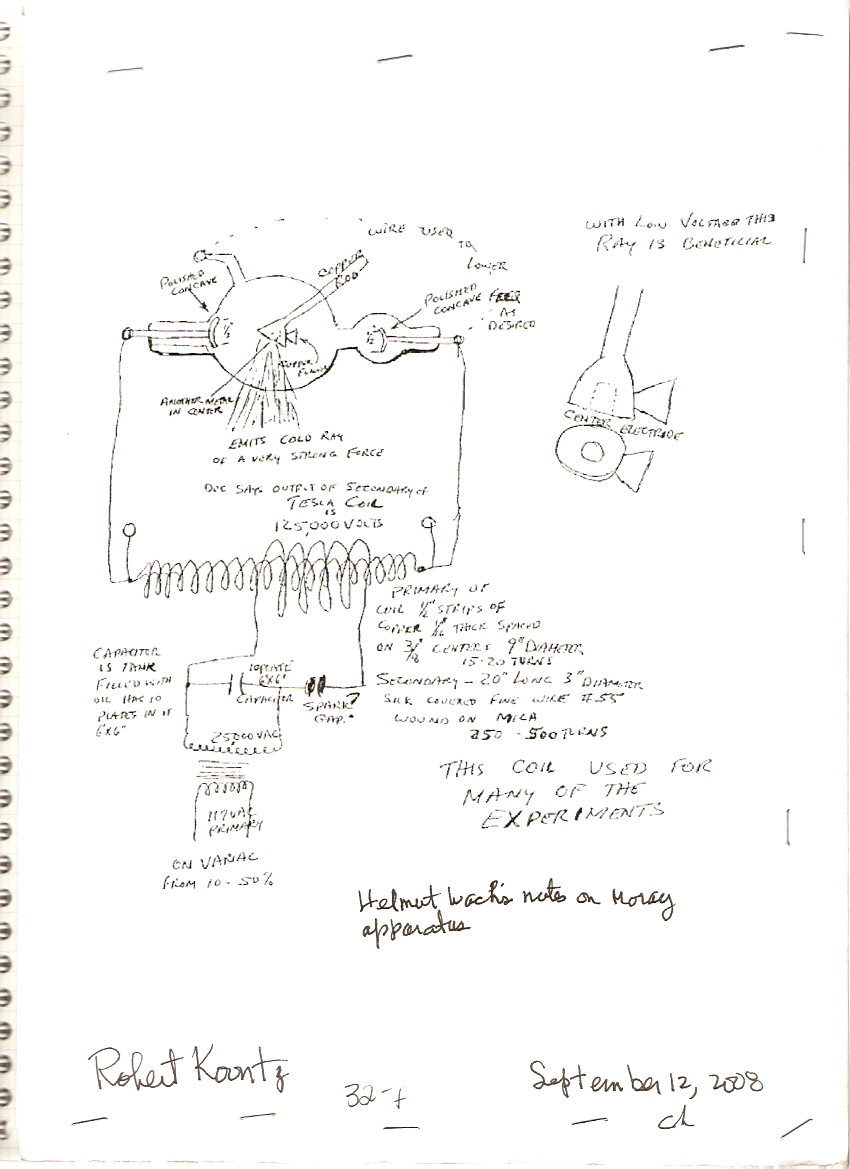 WIRE USED
TO
LOWER
WITH LOW VOLTAGE THIS
RAY IS BENEFICIAL
COPPER
ROD
POLISHED
CONCAVE
POLISHED
CONCAVE
AS
DESIRED
1/2"
COPPER
ANOTHER METAL
IN CENTER
CENTER ELECTRODE
EMITS COLD RAY
OF A VERY STRONG FORCE
DOC SAYS OUTPUT OF SECONDARY OF
TESLA COIL
IS
125,000 VOLTS
PRIMARY OF
COIL 1/2" STRIPS OF
COPPER 1/16" THICK SPACED
ON 3/8" CENTERS 9" DIAMETER
15-20 TURNS
SECONDARY - 20" LONG 3" DIAMETER
SILK COVERED FINE WIRE #35
WOUND ON MICA
250 - 500 TURNS
CAPACITOR
IS TANK
FILLED WITH
OIL HAS 10
PLATES IN IT
6X6"
10 PLATE
6X6"
CAPACITOR
SPARK?
GAP.
25000 VAC
117 VAC
PRIMARY
ON VARIAC
FROM 10 - 50%
THIS COIL USED FOR
MANY OF THE
EXPERIMENTS
Helmut Wach's notes on Moray
apparatus
Robert Koontz
September 12, 2008